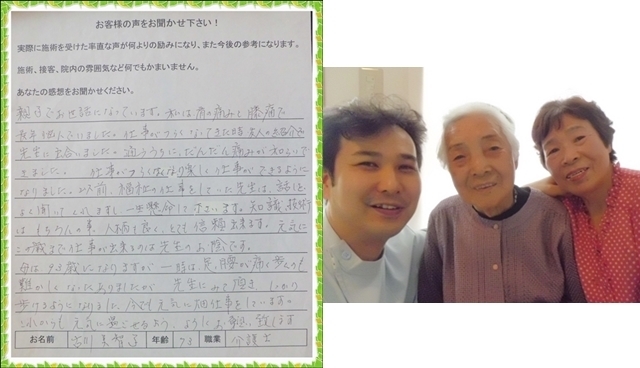 お客様の声をお聞かせ下さい!
実際に施術を受けた率直な声が何よりの励みになり、また今後の参考になります。
施術、接客、院内の雰囲気など何でもかまいません。
あなたの感想をお聞かせください。
親子でお世話になっています。私は肩の痛みと膝痛で
長年悩んでいました。仕事がつらくなってきた時、友人の紹介で
先生に出会いました。通ううちに、だんだん痛みが和らいで
きました。 仕事がつらくなく楽しく仕事ができるように
なりました。以前、福祉の仕事をしていた先生は、話しを
よく聞いてくれますし、一生懸命して下さいます。知識、技術
はもちろんの事、人柄も良く、とても信頼出来ます。元気に
この歳まで仕事が出来るのは先生のお陰です。
母は93歳になりますが、一時は足、腰が痛く歩くのも
難かしくなったありましたが、先生にみて頂き、しっかり
歩けるようになりました。今でも元気に畑仕事をしています。
これからも元気に過ごせますよう、よろしくお願い致します
お名前 古川 美智子 年齢 73 職業 介護士